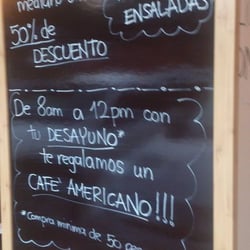 ENSALADAS
50% de
DESCUENTO
De 8am a 12pm con
tu DESAYUNO*
te regalamos un
CAFÈ AMERICANO!!!
*Compra minima de 50